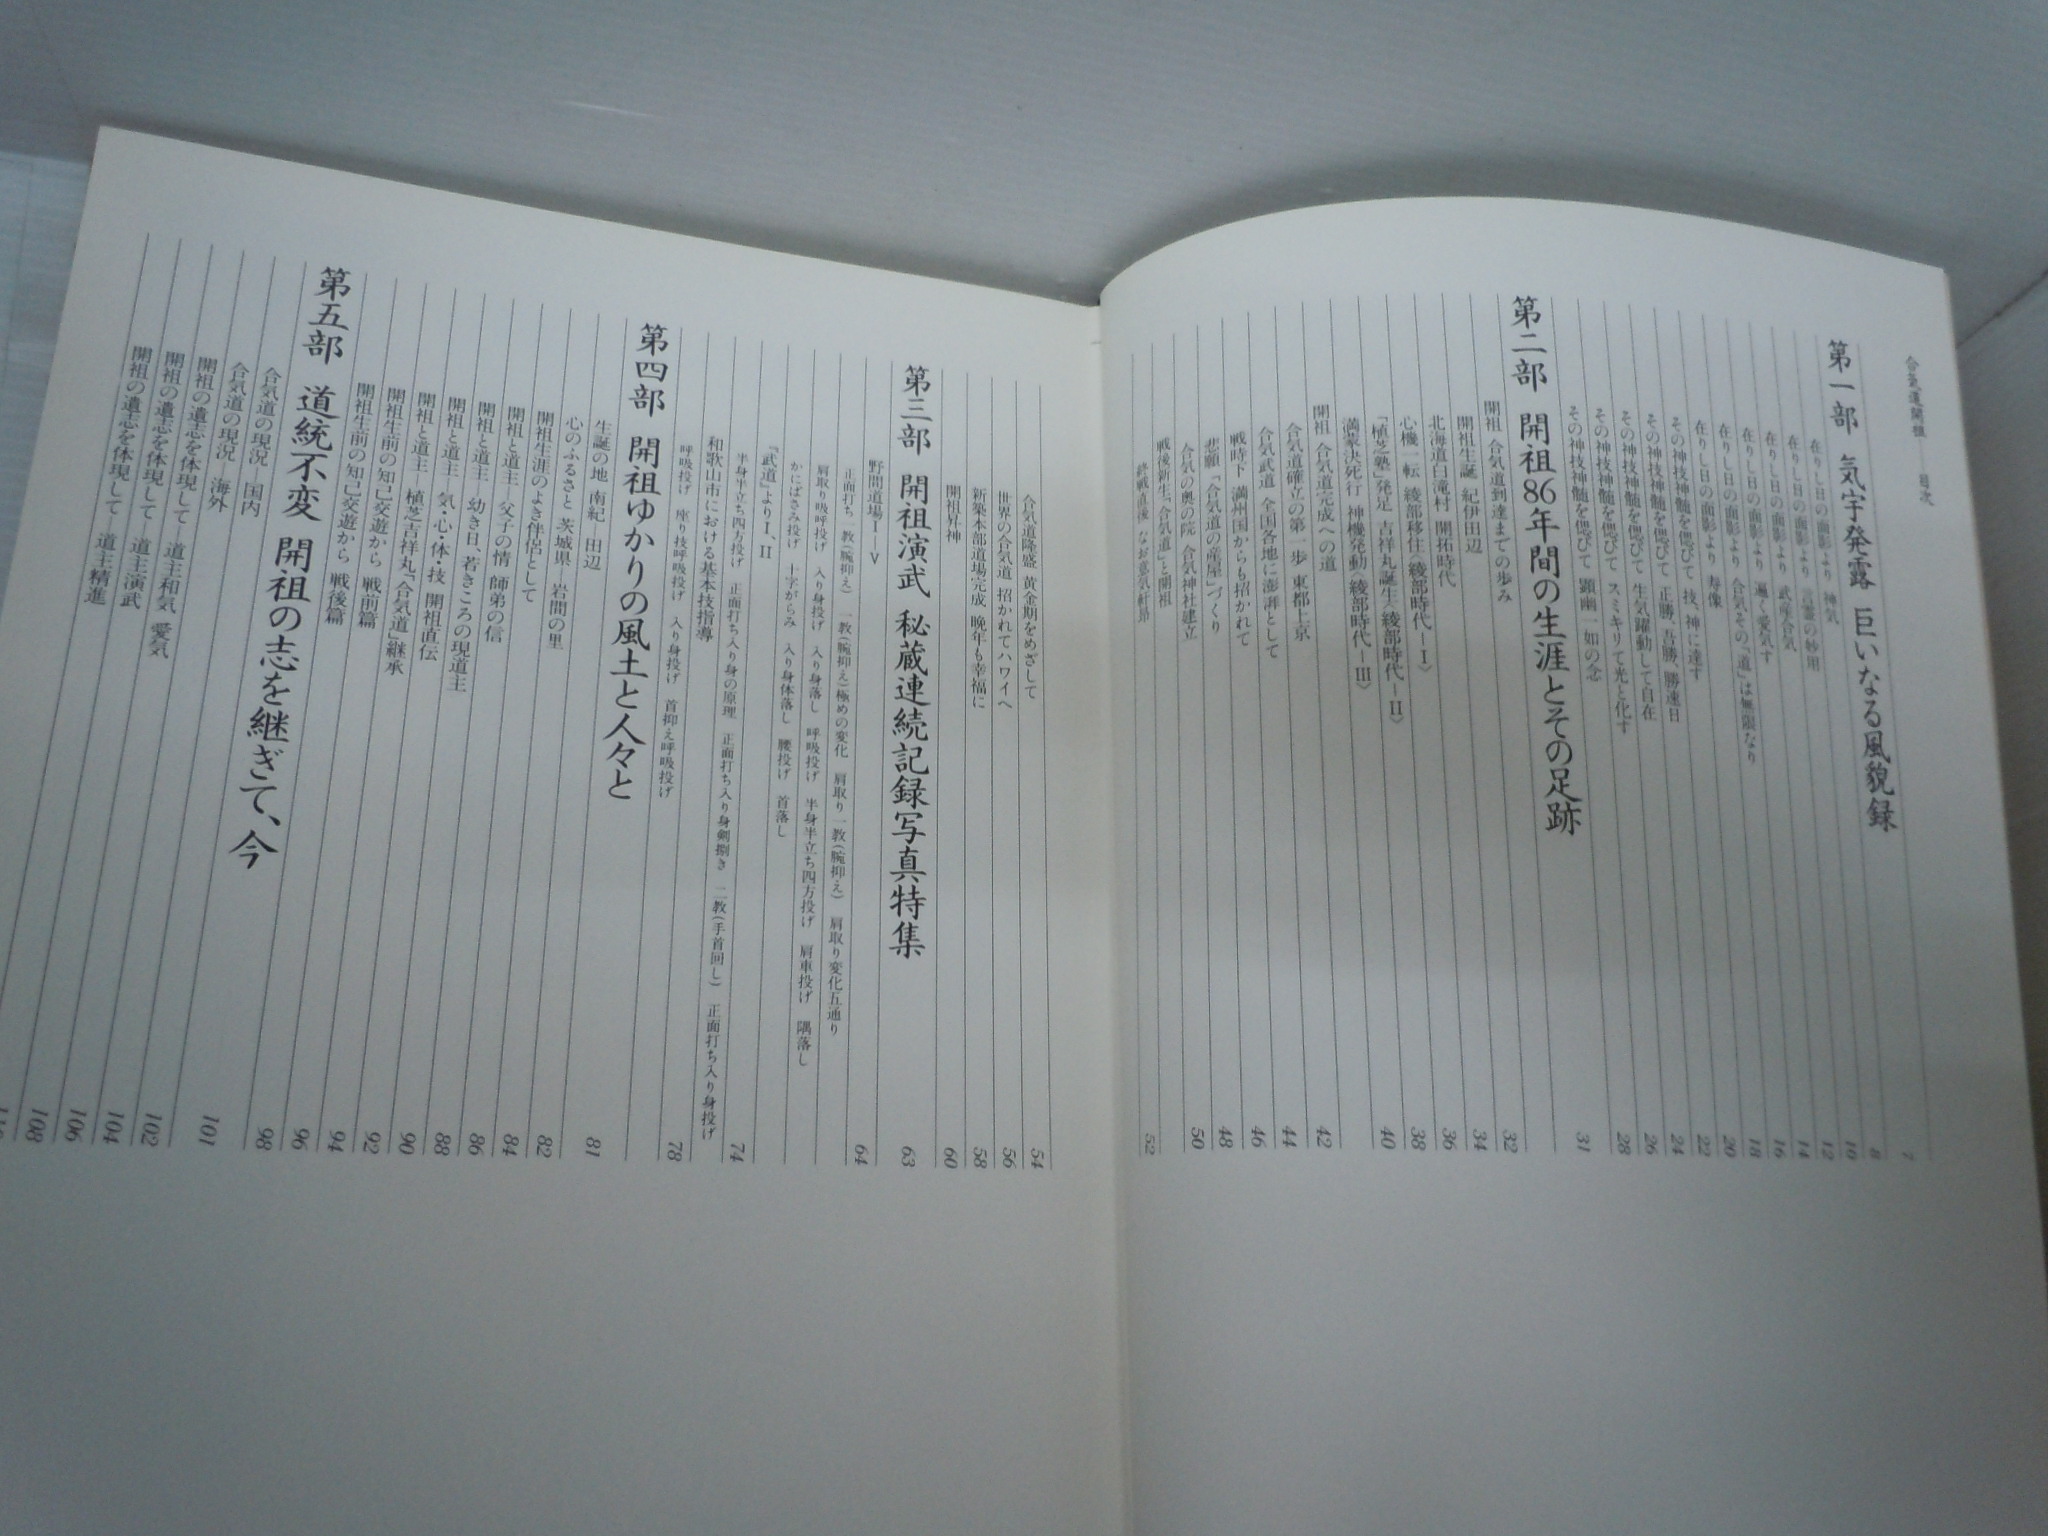 合氣道開祖——目次
第一部 気宇発露 巨いなる風貌録 7
在りし日の面影より 神気 8
在りし日の面影より 言霊の妙用 10
在りし日の面影より 武産合気 12
在りし日の面影より 遍く愛気す 14
在りし日の面影より 合気その「道」は無限なり 16
在りし日の面影より 寿像 18
その神技神髄を偲びて 技、神に達す 20
その神技神髄を偲びて 正勝、吾勝、勝速日 22
その神技神髄を偲びて 生気躍動して自在 24
その神技神髄を偲びて スミキリて光と化す 26
その神技神髄を偲びて 顕幽一如の念 28
第二部 開祖86年間の生涯とその足跡 31
開祖 合気道到達までの歩み 32
開祖生誕 紀伊田辺 34
北海道白滝村 開拓時代 36
心機一転 綾部移住〈綾部時代－I〉 38
「植芝塾」発足 吉祥丸誕生〈綾部時代－II〉 40
満蒙決死行 神機発動〈綾部時代－III〉
開祖 合気道完成への道 42
合気道確立の第一歩 東都上京 44
合気武道 全国各地に澎湃として 46
戦時下 満州国からも招かれて 48
悲願「合気道の産屋」づくり
合気の奥の院 合気神社建立 50
戦後新生「合気道」と開祖
終戦直後 なお意気軒昻 52
合気道隆盛 黄金期をめざして 54
世界の合気道 招かれてハワイへ 56
新築本部道場完成 晩年も幸福に 58
開祖昇神 60
第三部 開祖演武 秘蔵連続記録写真特集 63
野間道場I－V 64
正面打ち一教(腕抑え) 一教(腕抑え)極めの変化 肩取り一教(腕抑え) 肩取り変化五通り
肩取り呼吸投げ 入り身投げ 入り身落し 呼吸投げ 半身半立ち四方投げ 肩車投げ 隅落し
かにばさみ投げ 十字がらみ 入り身体落し 腰投げ 首落し
『武道』よりI、II 74
半身半立ち四方投げ 正面打ち入り身の原理 正面打ち入り身剣捌き 二教(手首回し) 正面打ち入り身投げ
和歌山市における基本技指導 78
呼吸投げ 座り技呼吸投げ 入り身投げ 首抑え呼吸投げ
第四部 開祖ゆかりの風土と人々と 81
生誕の地 南紀 田辺 82
心のふるさと 茨城県 岩間の里 84
開祖生涯のよき伴侶として 86
開祖と道主—父子の情 師弟の信 88
開祖と道主 幼き日、若きころの現道主 90
開祖と道主 気・心・体・技 開祖直伝 92
開祖と道主 植芝吉祥丸「合気道」継承 94
開祖生前の知己交遊から 戦前篇 96
開祖生前の知己交遊から 戦後篇 98
第五部 道統不変 開祖の志を継ぎて、今 101
合気道の現況 国内 102
合気道の現況—海外 104
開祖の遺志を体現して—道主和気 愛気 106
開祖の遺志を体現して 道主演武 108
開祖の遺志を体現して—道主精進